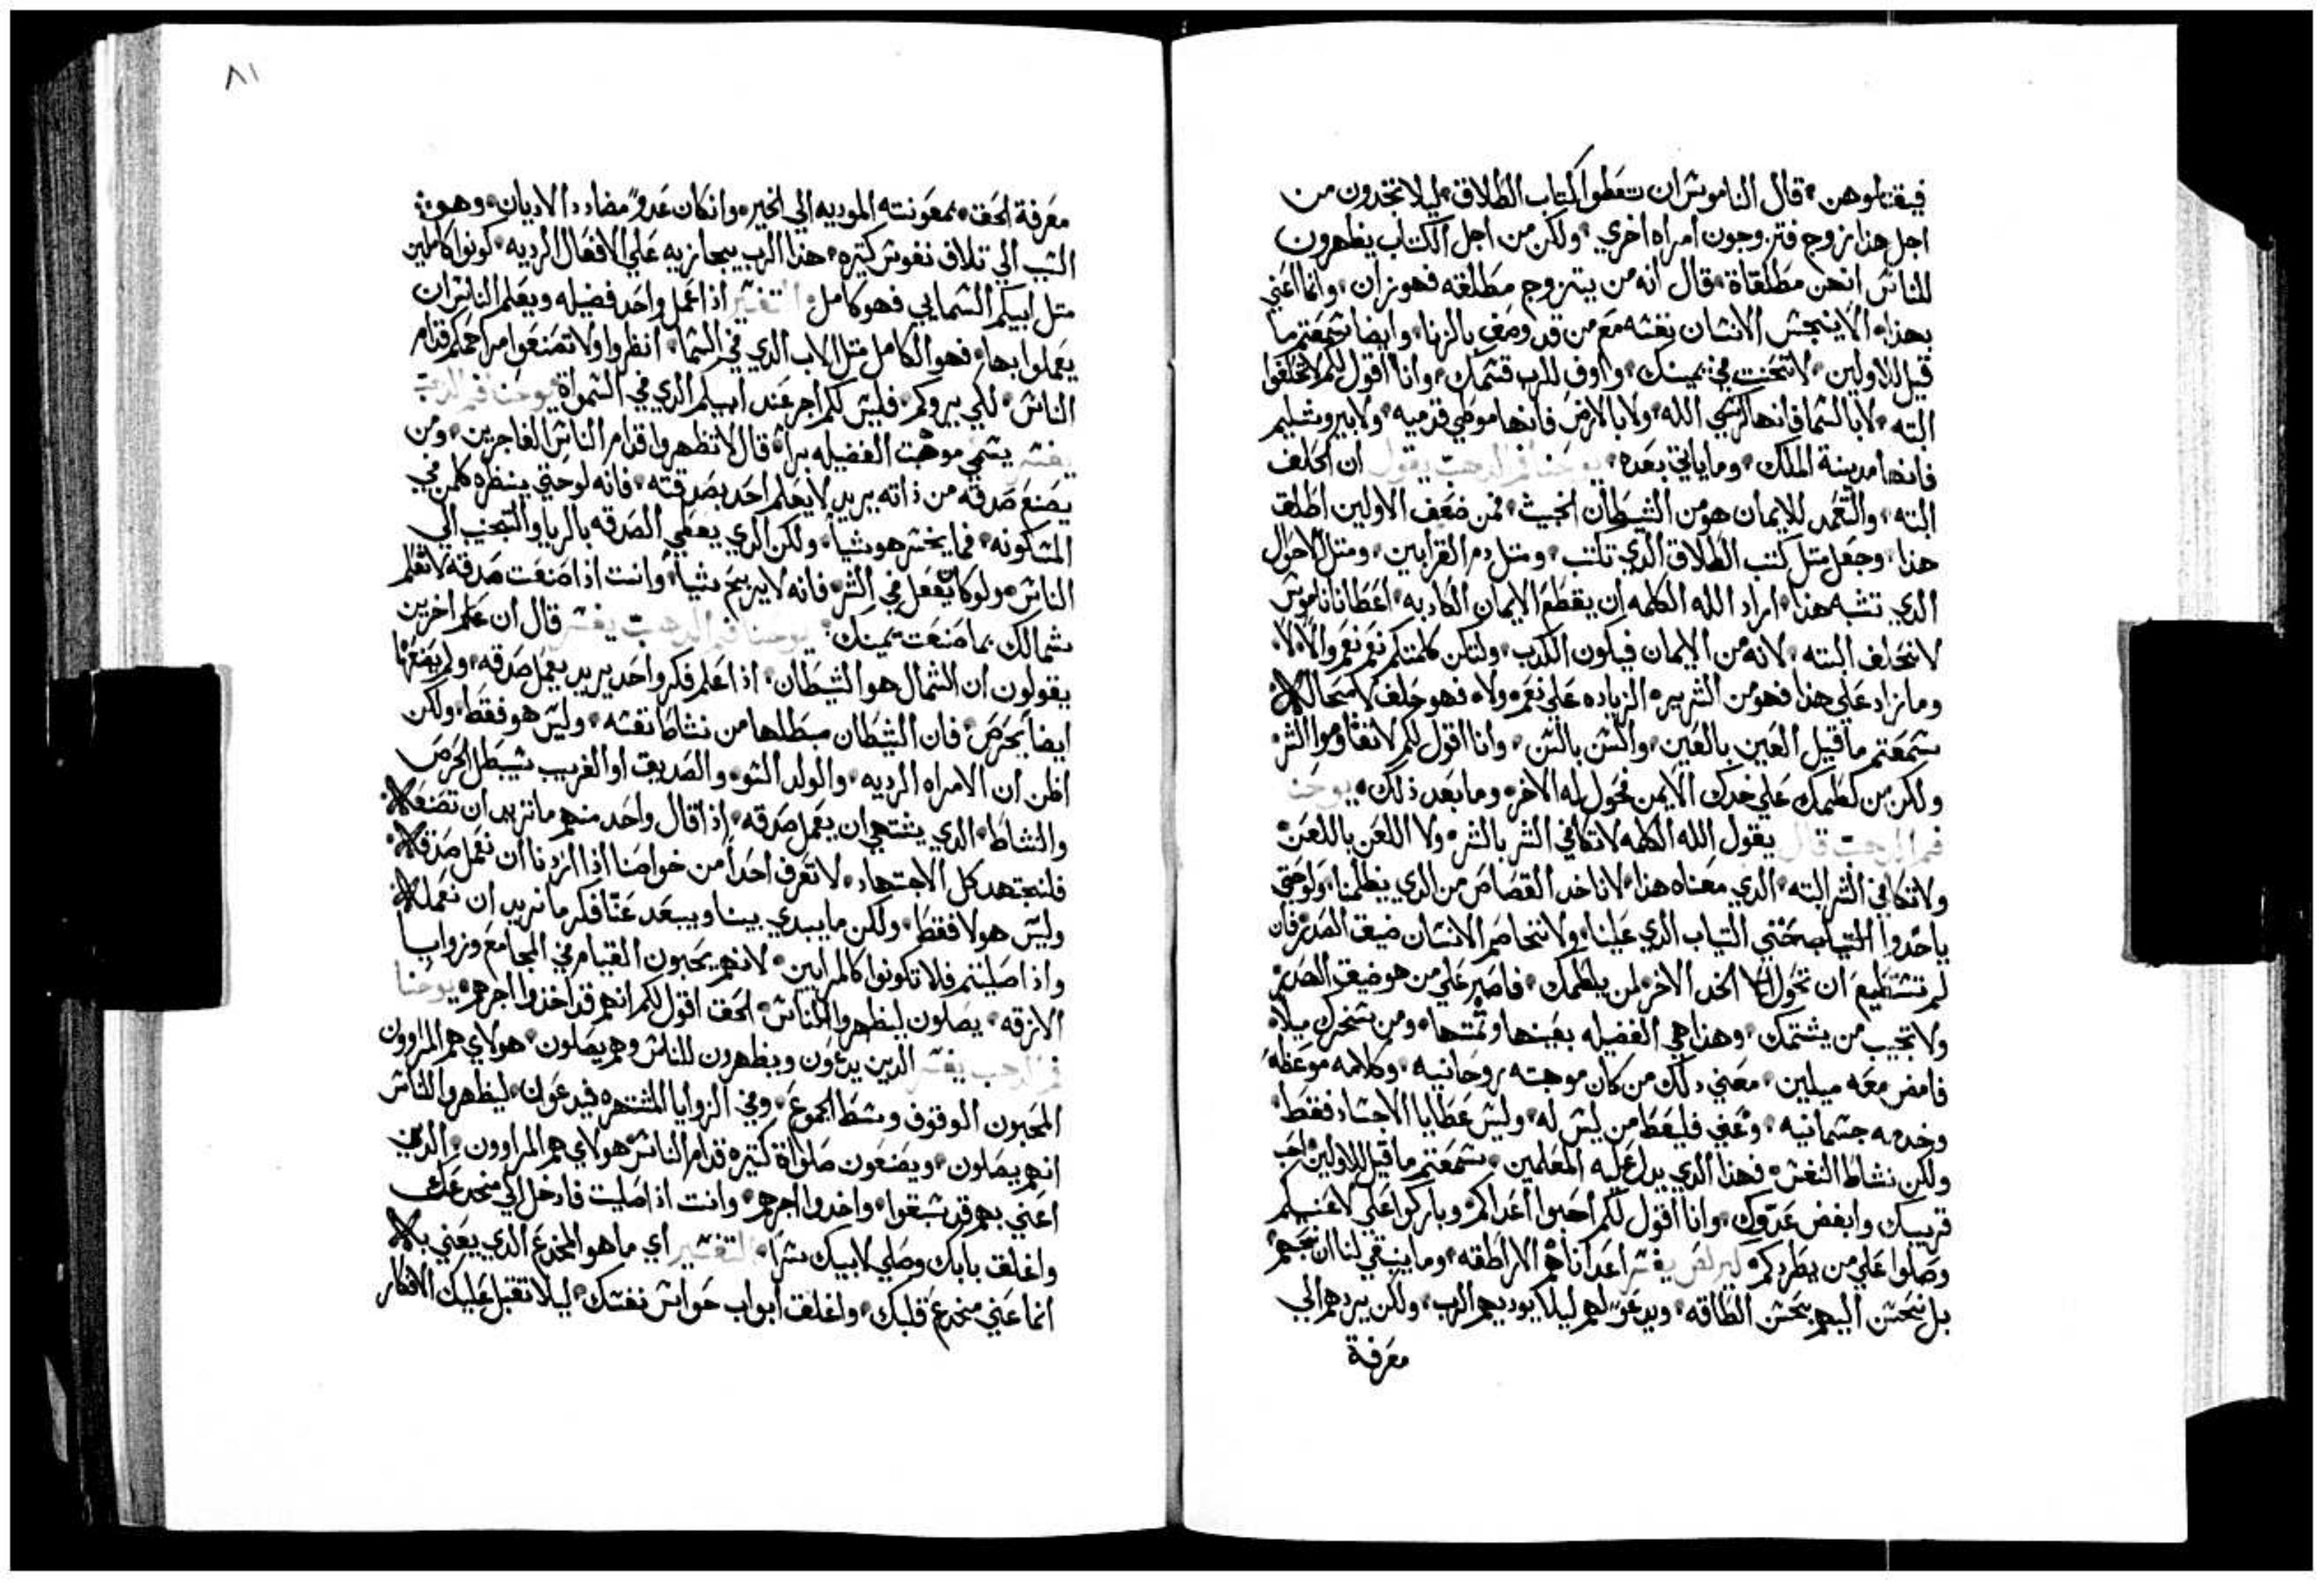 فيقتلوهن قال الناموس ان تعطوا كتاب الطلاق ليلا تجدون من
اجل هذا تزوج فتتزوجون امراه اخري ولكن من اجل الكتاب يظهرون
للناس انهن مطلقاة قال انه من يتزوج مطلقه فهو زان وانما اعني
بهذا الا ينجس الانسان نفسه مع من قد وصف بالزنا وايضا سمعتم ما
قيل للاولين لا تحنت في يمينك واوف للرب قسمك وانا اقول لكم لا تحلفوا
البته لا بالسما فانها كرسي الله ولا بالارض فانها موطي قدميه ولا بيروشليم
فانها مدينة الملك وما ياتي بعده يوحنا فم الدهب يقول ان الحلف
البته والتعمد للايمان هو من الشيطان الخبيث فمن ضعف الاولين اطلق
هذا وجعل مثل كتب الطلاق الذي تكتب ومثل دم القرابين ومثل الاحوال
الدي تشبه هذا اراد الله الكلمه ان يقطع الايمان الكادبه اعطانا ناموس
لا نحلف البته لانه من الايمان فيكون الكدب ولتكن كلمتكم نعم نعم والا لا
وما زاد علي هذا فهو من الشرير الزياده علي نعم ولا فهو حلف لا محاله
سمعتم ما قيل العين بالعين والسن بالسن وانا اقول لكم لا تقاوموا الشر
ولكن من لطمك علي خدك الايمن فحول له الاخر وما بعد ذلك يوحنا
فم الدهب قال يقول الله الكلمه لا تكافي الشر بالشر ولا اللعن باللعن
ولا تكافي الشر البته الدي معناه هذا لا ناخد القصاص من الدي يظلمنا ولو حتي
ياخدوا التياب حتي التياب الدي علينا ولا نتخاصم الانسان ضيق الصدر فان
لم تستطيع ان تحول الخد الاخر لمن يلطمك فاصبر علي من هو ضيق الصدر
ولا تجيب من يشتمك وهذا هي الفضيله بعينها ومن سخرك ميلا
فامض معه ميلين معني دلك من كان موهبته روحانيه وكلامه موعظه
وخدمه جسمانيه فليعط من ليس له وليس عطايا الاجساد فقط
ولكن نشاط النفس فهذا الدي يدل عليه المعلمين سمعتم ما قيل للاولين احب
قريبك وابغض عدوك وانا اقول لكم احبوا اعداكم وباركوا علي لاعنيكم
وصلوا علي من يطردكم كيرلص يفسر اعدانا هم الاراطقه وما ينبغي لنا ان
بل نحسن اليهم بحسن الطاقه ويدعوا لهم ليلا يوديهم الرب ولكن يردهم الي
معرفة
٨١
معرفة الحق بمعونته الموديه الي الخير وان كان عدو مضادد الاديان وهو
السبب الي تلاف نفوس كتيره هذا الرب يجازيه علي الافعال الرديه كونوا كاملين
متل ابيكم السمايي فهو كامل التفسير اذا عمل واحد فضيله ويعلم الناس ان
يعملوا بها فهو الكامل متل الاب الدي في السما انظروا ولا تصنعوا مراحمكم قدام
الناس لكي يروكم فليس لكم اجر عند ابيكم الدي في السمواة يوحنا فم الدهب
يفسر يسمي موهبت الفضيله براة قال لا تظهروا قدام الناس الفاجرين ومن
يصنع صدقه من ذاته يريد لا يعلم احد بصدقته فانه لو حتي ينظره كلمن في
المسكونه فما يخسر هو شيا ولكن الدي يعطي الصدقه بالريا والتحبب الي
الناس ولو كان يفعل في السر فانه لا يربح شيا وانت اذا صنعت صدقه لا تعلم
شمالك بما صنعت يمينك يوحنا فم الدهب يفسر قال ان علم اخرين
يقولون ان الشمال هو الشيطان اذا علم فكر واحد يريد يعمل صدقه ولم يصنعها
ايضا بحرص فان الشيطان يبطلها من نشاط نفسه وليس هو فقط ولكن
اظن ان الامراه الرديه والولد السو والصديق او الغريب سيبطل الحرص
والنشاط الدي يشتهي ان يعمل صدقه اذا قال واحد منهم ما تريد ان تصنع
فلنجتهد كل الاجتهاد لا نعرف احدا من خواصنا اذا اردنا ان نعمل صدقه
وليس هولا فقط ولكن ما يبدي بينا ويبعد عنا فكر ما نريد ان نعمله
واذا صليتم فلا تكونوا كالمرايين لانهم يحبون القيام في المجامع وزوايا
الازقه يصلون ليظهروا للناس الحق اقول لكم انهم قد اخدوا اجرهم يوحنا
فم الدهب يفسر الدين يدعون ويظهرون للناس وهم يصلون هولاي هم المراوون
المحبون الوقوف وسط الجموع وفي الزوايا المشتهره فيدعوان ليظهروا للناس
انهم يصلون ويصنعون صلواة كتيره قدام الناس هولاي هم المراوون والدين
اعني بهم قد سبقوا واخدوا اجرهم وانت اذا صليت فادخل الي مخدعك
واغلق بابك وصلي لابيك سرا التفسير اي ما هو المخدع الدي يعني به
انما عني مخدع قلبك واغلق ابواب حواس نفسك ليلا تقبل عليك الافكار